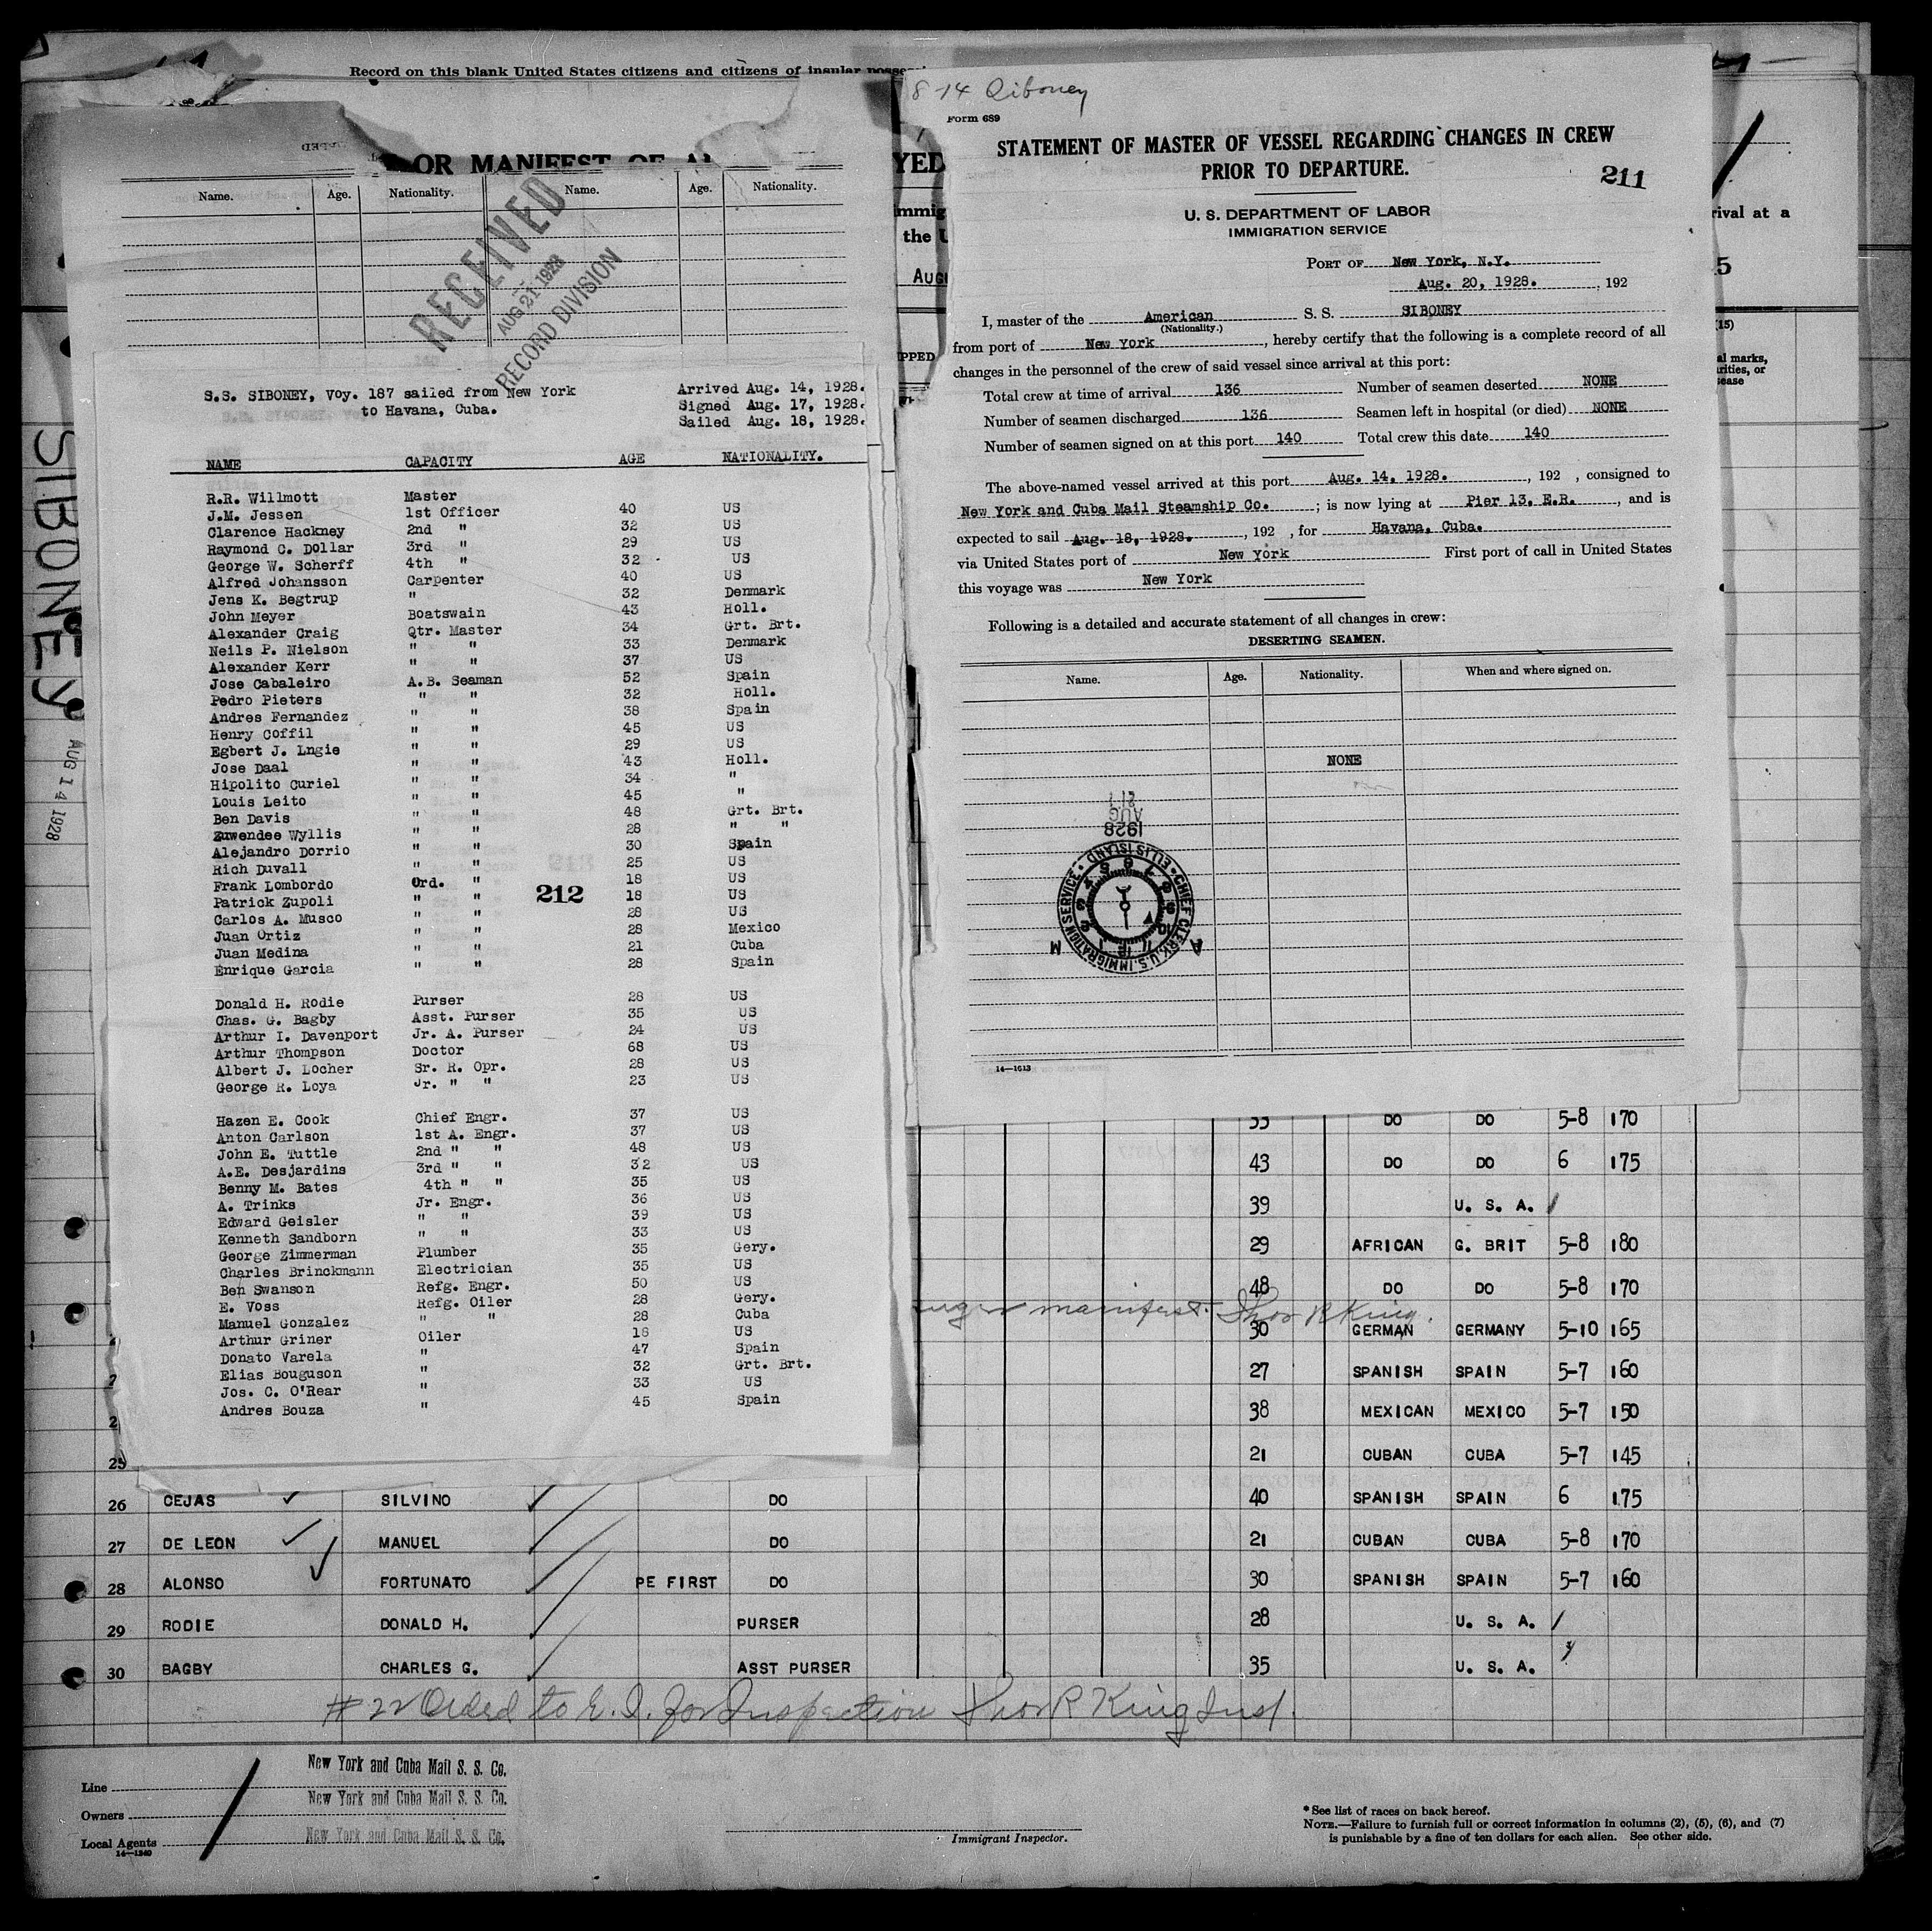 Record on this blank United States citizens and citizens of insular
OR MANIFEST OF
Name. Age. Nationality. Name. Age. Nationality.
RECEIVED
AUG 21 1928
RECORD DIVISION
S.S. SIBONEY, Voy. 187 sailed from New York
to Havana, Cuba.
Arrived Aug. 14, 1928.
Signed Aug. 17, 1928.
Sailed Aug. 18, 1928.
NAME CAPACITY AGE NATIONALITY.
R.R. Willmott Master
J.M. Jessen 1st Officer 40 US
Clarence Hackney 2nd " 32 US
Raymond C. Dollar 3rd " 29 US
George W. Scherff 4th " 32 US
Alfred Johansson Carpenter 40 US
Jens K. Begtrup " 32 Denmark
John Meyer Boatswain 43 Holl.
Alexander Craig Qtr. Master 34 Grt. Brt.
Neils P. Nielson " " 33 Denmark
Alexander Kerr " " 37 US
Jose Cabaleiro A.B. Seaman 52 Spain
Pedro Pieters " " 32 Holl.
Andres Fernandez " " 38 Spain
Henry Coffil " " 45 US
Egbert J. Lngie " " 29 US
Jose Daal " " 43 Holl.
Hipolito Curiel " " 34 "
Louis Leito " " 45 "
Ben Davis " " 48 Grt. Brt.
Zuwendee Wyllis " " 28 " "
Alejandro Dorrio " " 30 Spain
Rich Duvall " " 25 US
Frank Lombordo Ord. " 18 US
212
Patrick Zupoli " " 18 US
Carlos A. Musco " " 28 US
Juan Ortiz " " 28 Mexico
Juan Medina " " 21 Cuba
Enrique Garcia " " 28 Spain
Donald H. Rodie Purser 28 US
Chas. G. Bagby Asst. Purser 35 US
Arthur I. Davenport Jr. A. Purser 24 US
Arthur Thompson Doctor 68 US
Albert J. Locher Sr. R. Opr. 28 US
George R. Loya Jr. " " 23 US
Hazen E. Cook Chief Engr. 37 US
Anton Carlson 1st A. Engr. 37 US
John E. Tuttle 2nd " " 48 US
A.E. Desjardins 3rd " " 32 US
Benny M. Bates 4th " " 35 US
A. Trinks Jr. Engr. 36 US
Edward Geisler " " 39 US
Kenneth Sandborn " " 33 US
George Zimmerman Plumber 35 Gery.
Charles Brinckmann Electrician 35 US
Ben Swanson Refg. Engr. 50 US
E. Voss Refg. Oiler 28 Gery.
Manuel Gonzalez " " 28 Cuba
Arthur Griner Oiler 18 US
Donato Varela " 47 Spain
Elias Bouguson " 32 Grt. Brt.
Jos. C. O'Rear " 33 US
Andres Bouza " 45 Spain
SIBONEY
AUG 14 1928
8-14 Siboney
Form 689
STATEMENT OF MASTER OF VESSEL REGARDING CHANGES IN CREW
PRIOR TO DEPARTURE.
211
U. S. DEPARTMENT OF LABOR
IMMIGRATION SERVICE
PORT OF New York, N.Y.
Aug. 20, 1928. , 192
I, master of the American S. S. SIBONEY
(Nationality.)
from port of New York, hereby certify that the following is a complete record of all
changes in the personnel of the crew of said vessel since arrival at this port:
Total crew at time of arrival 136 Number of seamen deserted NONE
Number of seamen discharged 136 Seamen left in hospital (or died) NONE
Number of seamen signed on at this port 140 Total crew this date 140
The above-named vessel arrived at this port Aug. 14, 1928. , 192 , consigned to
New York and Cuba Mail Steamship Co. ; is now lying at Pier 13, E.R. , and is
expected to sail Aug. 18, 1928. , 192 , for Havana, Cuba.
via United States port of New York First port of call in United States
this voyage was New York
Following is a detailed and accurate statement of all changes in crew:
DESERTING SEAMEN.
Name. Age. Nationality. When and where signed on.
NONE
211
AUG
1928
CHIEF CLERK, U.S. IMMIGRATION SERVICE · ELLIS ISLAND
A M
14—1613
YED
the U
rival at a
5
(15)
al marks,
55 DO DO 5-8 170
43 DO DO 6 175
39 U. S. A.
29 AFRICAN G. BRIT 5-8 180
48 DO DO 5-8 170
manifest. Thos R King.
30 GERMAN GERMANY 5-10 165
27 SPANISH SPAIN 5-7 160
38 MEXICAN MEXICO 5-7 150
25 21 CUBAN CUBA 5-7 145
26 CEJAS SILVINO DO 40 SPANISH SPAIN 6 175
27 DE LEON MANUEL DO 21 CUBAN CUBA 5-8 170
28 ALONSO FORTUNATO PE FIRST DO 30 SPANISH SPAIN 5-7 160
29 RODIE DONALD H. PURSER 28 U. S. A.
30 BAGBY CHARLES G. ASST PURSER 35 U. S. A.
#22 Orded to E. I. for Inspection Thos R King Insp.
Line New York and Cuba Mail S. S. Co.
Owners New York and Cuba Mail S. S. Co.
Local Agents New York and Cuba Mail S. S. Co.
14—1240
Immigrant Inspector.
* See list of races on back hereof.
NOTE.—Failure to furnish full or correct information in columns (2), (5), (6), and (7)
is punishable by a fine of ten dollars for each alien. See other side.